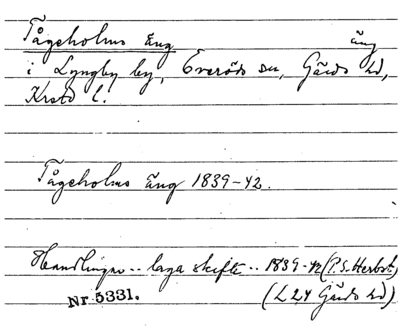 Tågeholms äng äng
i Lyngby by, Everöds sn, Gärds hd,
Krstd l.
Tågeholms äng 1839-42.
Handlingar .. laga skifte .. 1839-42 (P.S. Herbst)
Nr 5331. (L 24 Gärds hd)